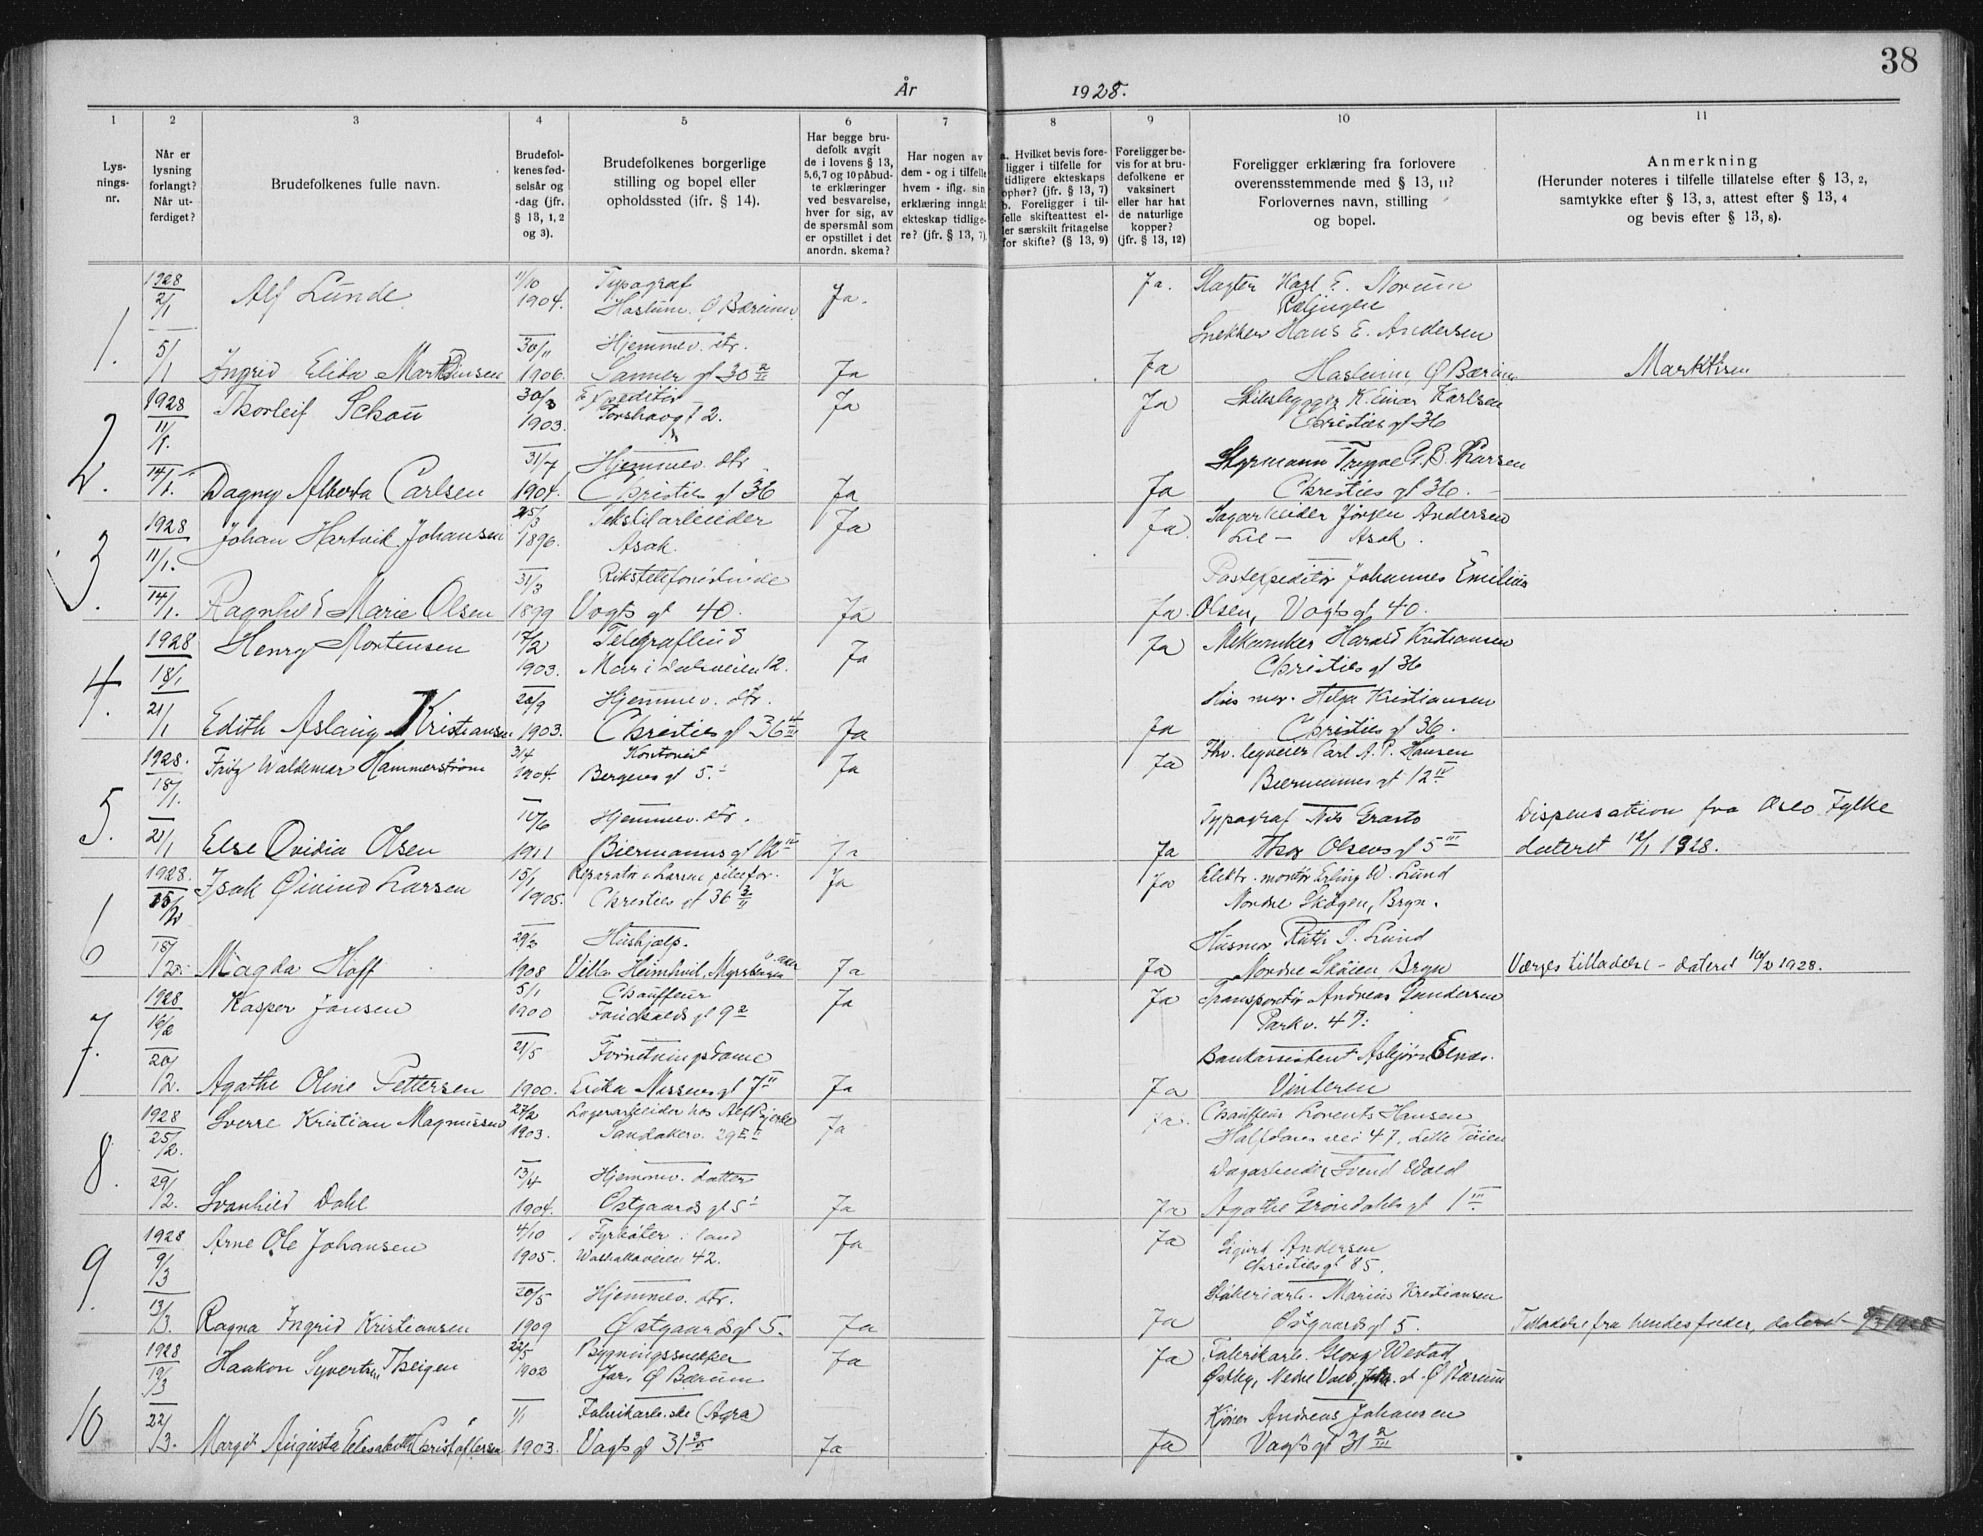 38
År 1928.
1 2 3 4 5 6 7 8 9 10 11
Lys-
nings-
nr.
Når er
lysning
forlangt?
Når ut-
ferdiget?
Brudefolkenes fulle navn.
Brudefol-
kenes fød-
selsår og
-dag (jfr.
§ 13, 1, 2
og 3).
Brudefolkenes borgerlige
stilling og bopel eller
opholdssted (jfr. § 14).
Har begge bru-
defolk avgit
de i lovens § 13,
5,6,7 og 10 påbud-
te erklæringer
ved besvarelse,
hver for sig, av
de spørsmål som
er opstillet i det
anordn. skema?
Har nogen av
dem - og i tilfelle
hvem - iflg. sin
erklæring inngåt
ekteskap tidlige-
re? (jfr. § 13, 7)
a. Hvilket bevis fore-
ligger i tilfelle for
tidligere ekteskaps
ophør? (jfr. § 13, 7)
b. Foreligger i til-
felle skifteattest el-
ler særskilt fritagelse
for skifte? (§ 13, 9)
Foreligger be-
vis for at bru-
defolkene er
vaksinert
eller har hat
de naturlige
kopper?
(jfr. § 13, 12)
Foreligger erklæring fra forlovere
overensstemmende med § 13, 11?
Forlovernes navn, stilling
og bopel.
Anmerkning
(Herunder noteres i tilfelle tillatelse efter § 13, 2,
samtykke efter § 13, 3, attest efter § 13, 4
og bevis efter § 13, 8).
1. 1928 2/1 Alf Lunde 11/10 1904. Typograf Ja. Ja. Slagter Karl E. Norum
Haslum Ø Bærum Rælingen
5/1 30/11 Hjemmev. dtr. Snekker Hans E. Andersen
Ingrid Elida Martinsen 1906. Sanner gt 30 Ja Ja Haslum, Ø Bærum
2. 1928 11/1. Thorleif Schau 30/3 1903. Expeditør Ja Ja K. Einar Karlsen
2. Christies gt 36
14/1. 31/7 Hjemmev. dtr Styrmann Trygve G. B.
Dagny Alberta Carlsen 1904. Christies gt 36 Ja Ja Christies gt 36.
3. 1928 11/1. Johan Hartvik Johansen 25/3 1896. Tekstilarbeider Ja Ja. Jørgen Andersen
Asak. Asak.
14/1. 31/3 Rikstelefonistinde Postexpeditør Johannes Emilius
Ragnhild Marie Olsen 1899 Vogts gt 40. Ja Ja. Olsen, Vogts gt 40.
4. 1928 18/1 Henry Mortensen 17/2 1903. Ja Ja Mekaniker Harald Kristiansen
12. Christies gt 36
21/1 20/9 Hjemmev. dtr. Helga Kristiansen
Edith Aslaug Kristiansen 1903. Christies gt 36 Ja Ja Christies gt 36.
5. 1928. 18/1. Fritz Waldemar Hammerstrøm 3/4 1904. Kontorist Ja Ja Carl A. P. Hansen
Bergens gt 5. Biermannes gt 12 IV
21/1 10/6 Hjemmev. dtr. Typograf Nils
Else Ovidia Olsen 1911 Biermanns gt 12 IV Ja Ja Thor Olsens gt 5 III
Dispensation fra Oslo Fylke
dateret 12/1 1928.
6 1928. 15/2 Isak Øivind Larsen 15/1 1905. Ja Ja Elektr. montør Erling W. Lund
Christies gt 36 Nordre Skøgen, Bryn.
18/2. 29/2 Hushjælp. Husmor Ruth P. Lund
Magda Hoff 1908 Villa Heimhvil, Ja Ja Nordre Skøien Bryn Værges tilladelse - dateret 16/2 1928.
7. 1928 16/2 Kasper Jansen 5/1 1900 Chauffeur Ja Ja Transportør Andreas Gundersen
gt 9 Parkv. 47:
20/2. 21/5 Forretningsdame Bankassistent Asbjørn
Agathe Oline Pettersen 1900. Erika Nissens gt 7 II Ja Ja Vinteren
8. 1928 25/2. Sverre Kristian Magnussen 27/2 1903. Lagerarbeider hos Alf Bjerke Ja Ja. Chauffeur Lorents Hansen
Sandakerv. 29 Halfdans vei 47, Lille Tøien
29/2. 13/4 Hjemmev. datter Svend
Svanhild Dahl 1904. Østgaards gt 5 Ja Ja Agathe Grøndahls gt 1 III
9. 1928 9/3 Arne Ole Johansen 4/10 1905. Fyrbøter i land Ja Ja Sigurd Andersen
Walhallaveien 42. Christies gt 85.
13/3. 20/5 Hjemmev. dtr. Marius Kristiansen
Ragna Ingrid Kristiansen 1909 Østgaards gt 5. Ja Ja Østgaards gt 5. Tilladelse fra hendes fader, dateret 8/3 1928
10 1928 19/3 Haakon Syvertsen Theigen 22/5 1902 Bygningssnekker Ja Ja Fabrikarb. Georg Westad
Jar, Ø Bærum Østby, Nedre Ø Bærum
22/3. 1/1 Fabrikarb.ske (Agra) Andreas Johansen
Margit Augusta Elisabeth Christoffersen 1903. Vogts gt 31 Ja Ja Vogts gt 31